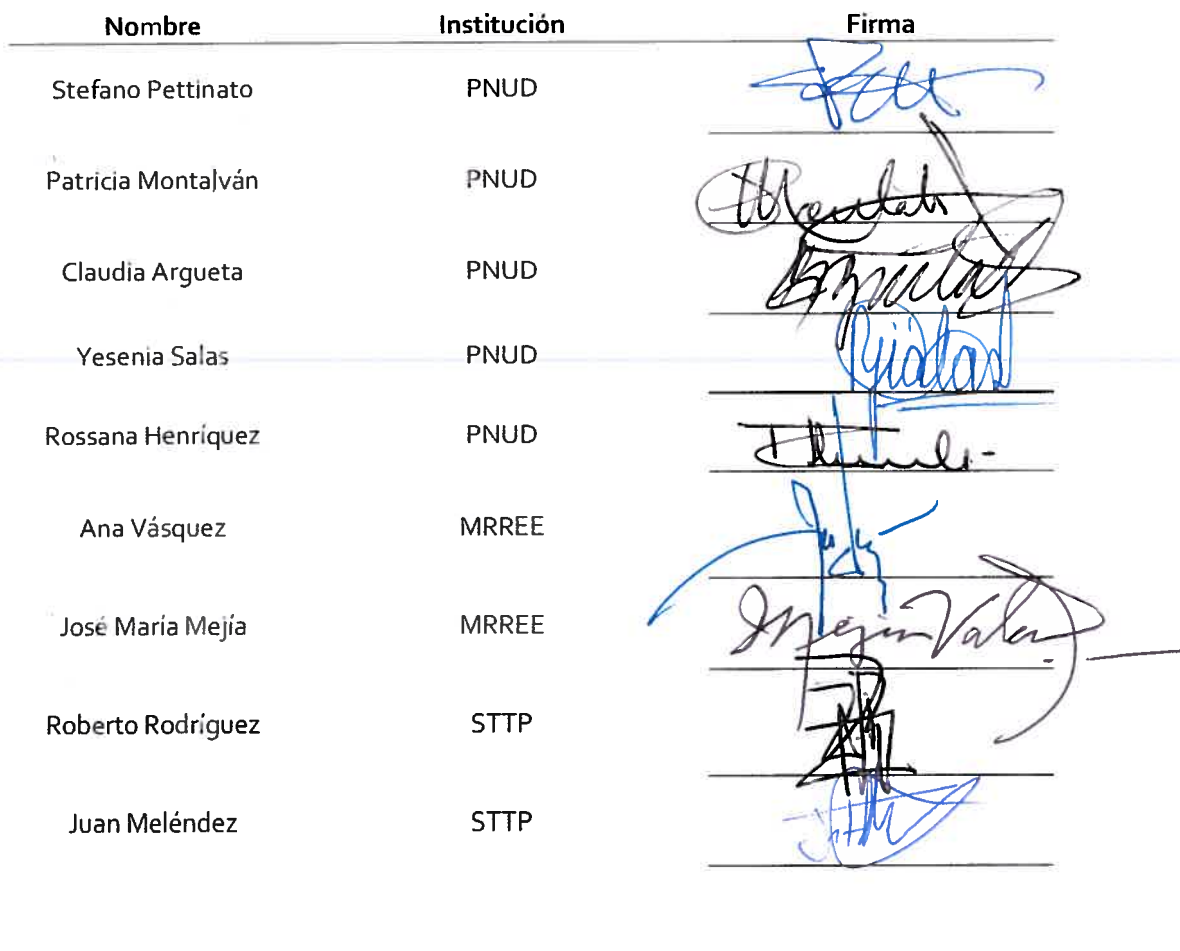 Nombre Institución Firma
Stefano Pettinato PNUD
Patricia Montalván PNUD
Claudia Argueta PNUD
Yesenia Salas PNUD
Rossana Henríquez PNUD
Ana Vásquez MRREE
José María Mejía MRREE
Roberto Rodríguez STTP
Juan Meléndez STTP